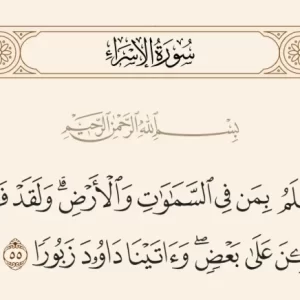 سُورَةُ الإِسْرَاءِ
بِسْمِ اللَّهِ الرَّحْمَٰنِ الرَّحِيمِ
بِمَن فِي السَّمَٰوَٰتِ وَالْأَرْضِ ۗ وَلَقَدْ
عَلَىٰ بَعْضٍ ۖ وَءَاتَيْنَا دَاوُۥدَ زَبُورًا ٥٥